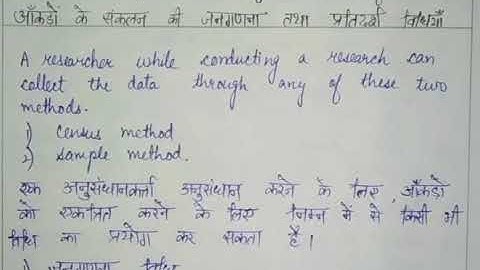 आँकड़ों के संकलन की जनगणना तथा प्रतिदर्श विधियाँ
A researcher while conducting a research can
collect the data through any of these two
methods.
1) Census method
2) Sample method.
एक अनुसंधानकर्त्ता अनुसंधान करने के लिए आँकड़ों
को एकत्रित करने के लिए निम्न में से किसी भी
विधि का प्रयोग कर सकता है।
1) जनगणना विधि